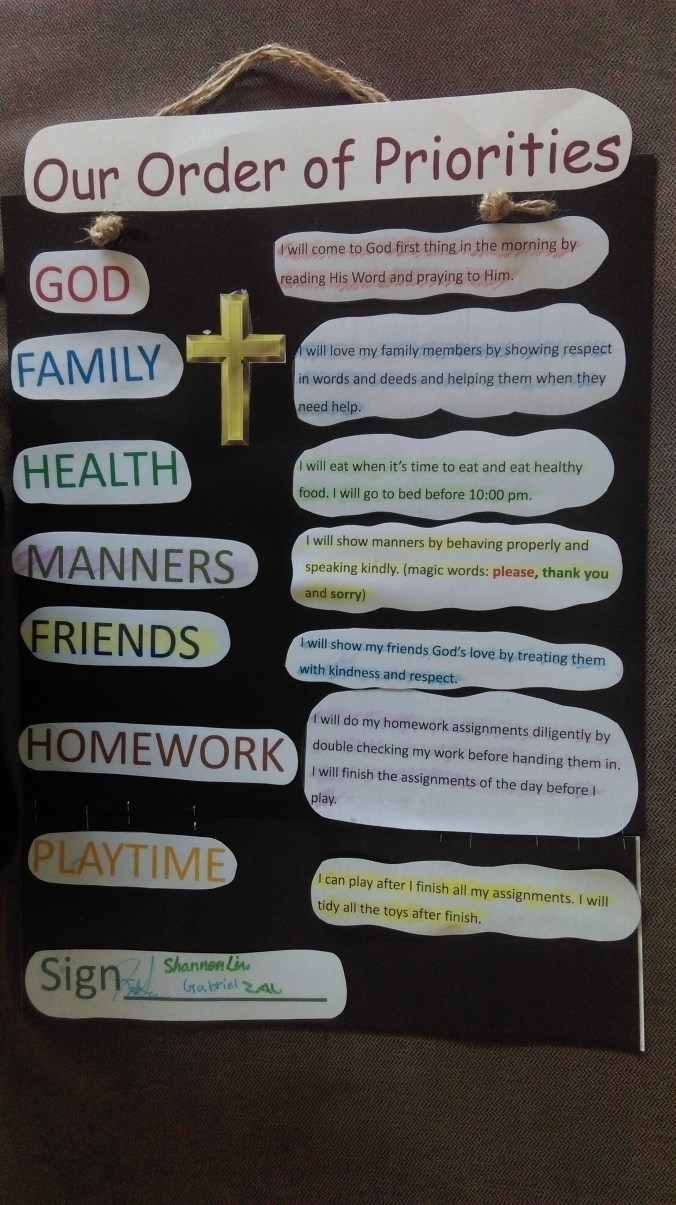 Our Order of Priorities
GOD
I will come to God first thing in the morning by
reading His Word and praying to Him.
FAMILY
I will love my family members by showing respect
in words and deeds and helping them when they
need help.
HEALTH
I will eat when it's time to eat and eat healthy
food. I will go to bed before 10:00 pm.
MANNERS
I will show manners by behaving properly and
speaking kindly. (magic words: please, thank you
and sorry)
FRIENDS
I will show my friends God's love by treating them
with kindness and respect.
HOMEWORK
I will do my homework assignments diligently by
double checking my work before handing them in.
I will finish the assignments of the day before I
play.
PLAYTIME
I can play after I finish all my assignments. I will
tidy all the toys after finish.
Sign
Shannon
Gabriel